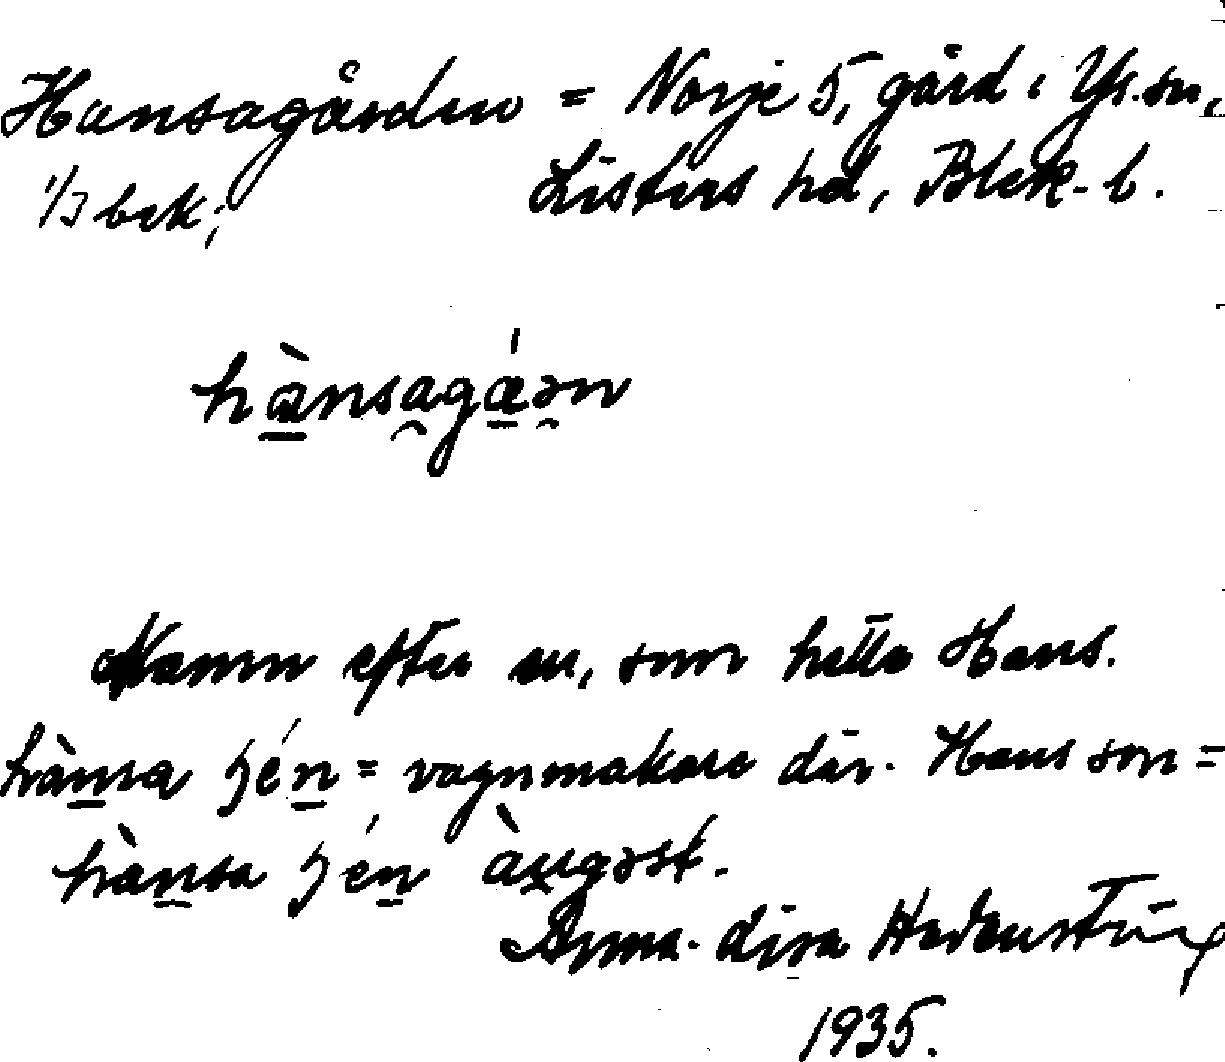 Hansagården = Norje 5, gård i Ys. sn,
1/3 bek; Listers hd, Blek. l.
hànsagáən
Namn efter en, som hette Hans.
hànsa jén = vagnmakare där. Hans son =
hànsa jén àugəst.
Anna-disa
1935.